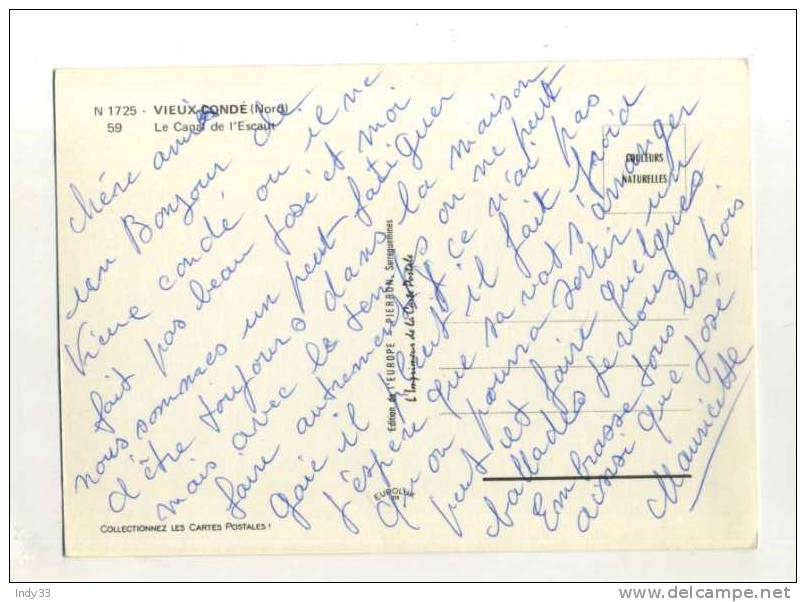 N 1725 - VIEUX-CONDÉ (Nord)
59 Le Canal de l'Escaut
chère amies
un Bonjour de
Vieux condé ou il ne
fait pas beau José et moi
nous sommes un peut fatiguer
d'être toujours dans la maison
mais avec le temps on ne peut
faire autrement ce n'ai pas
gaie il pleut il fait froid
j'espère que sa vat s'arranger
qu'on pourra sortir un
peut et faire quelques
ballades je vous
Embrasse tous les trois
ainsi que José
Mauricette
COULEURS
NATURELLES
Edition de l'EUROPE S PIERRON. Sarreguemines
L'Imprimeur de la Carte Postale
EUROLUX
COLLECTIONNEZ LES CARTES POSTALES !
Indy33
www.delcampe.net